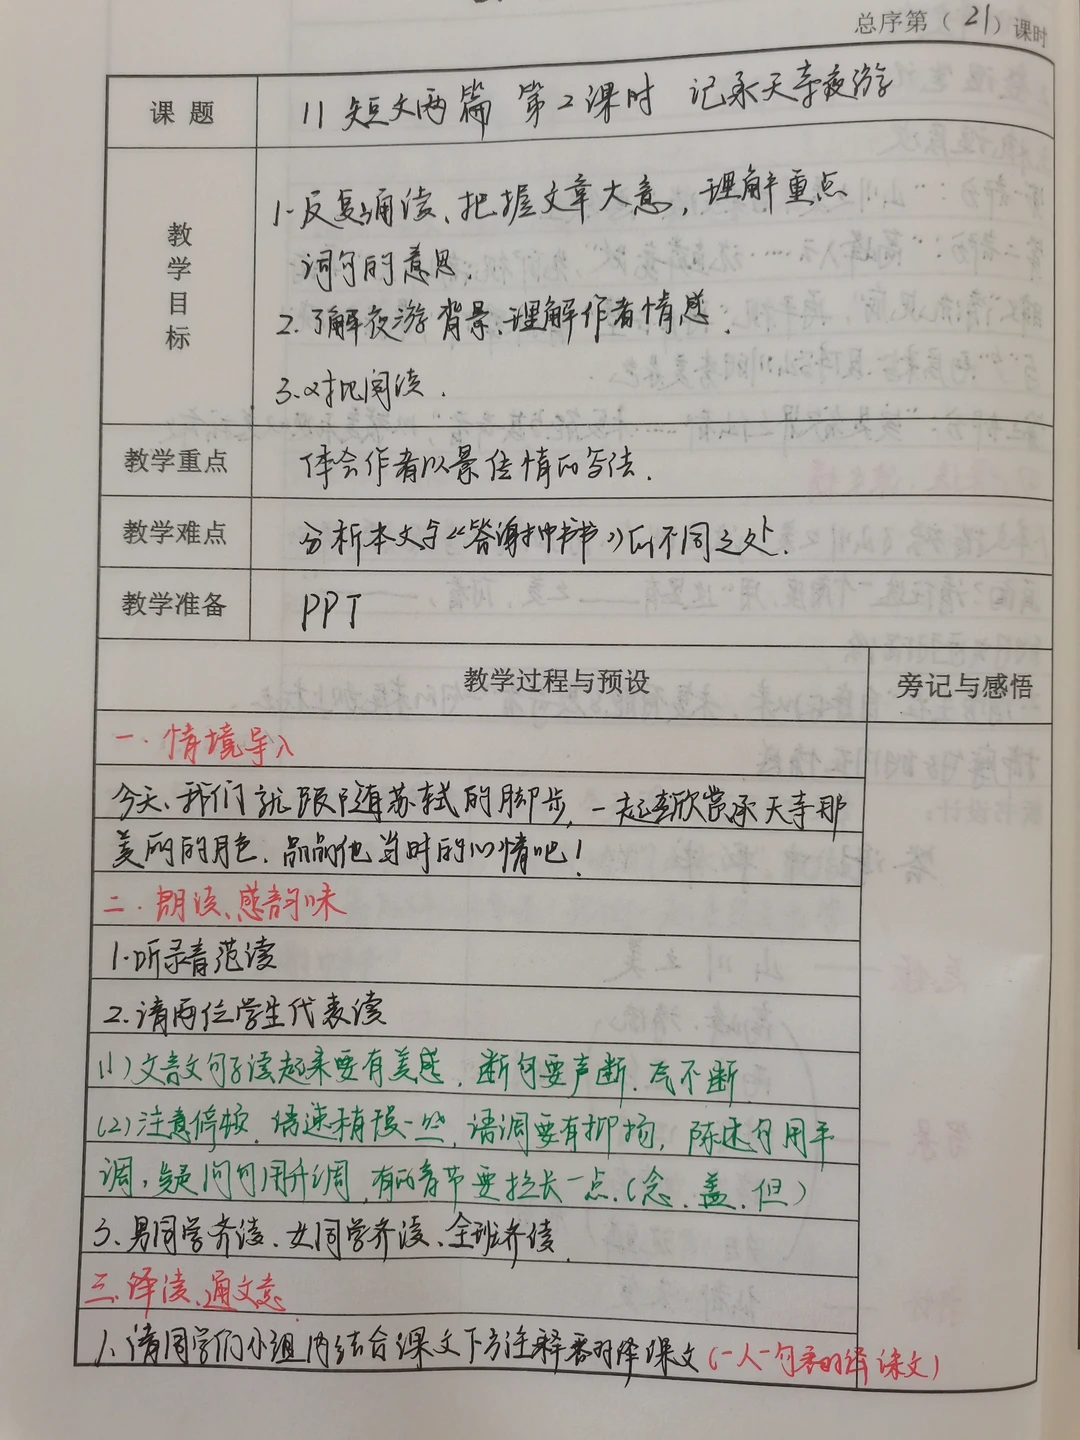 总序第（21）课时
课题 11 短文两篇 第2课时 记承天寺夜游
教学目标
1.反复诵读、把握文章大意，理解重点
词句的意思.
2.了解夜游背景、理解作者情感.
3.对比阅读.
教学重点 体会作者以景传情的写法.
教学难点 分析本文与《答谢中书书》的不同之处.
教学准备 PPT
教学过程与预设 旁记与感悟
一.情境导入
今天、我们就跟随苏轼的脚步，一起去欣赏承天寺那
美丽的月色、品品他当时的心情吧！
二.朗读、感韵味
1.听录音范读
2.请两位学生代表读
(1)文言文句子读起来要有美感，断句要声断、气不断
(2)注意停顿，语速稍慢一些，语调要有抑扬，陈述句用平
调，疑问句用升调，有的音节要拉长一点.（念、盖、但）
3、男同学齐读、女同学齐读、全班齐读.
三.译读、通文意
1、请同学们小组内结合课文下方注释翻译课文(一人一句翻译课文)